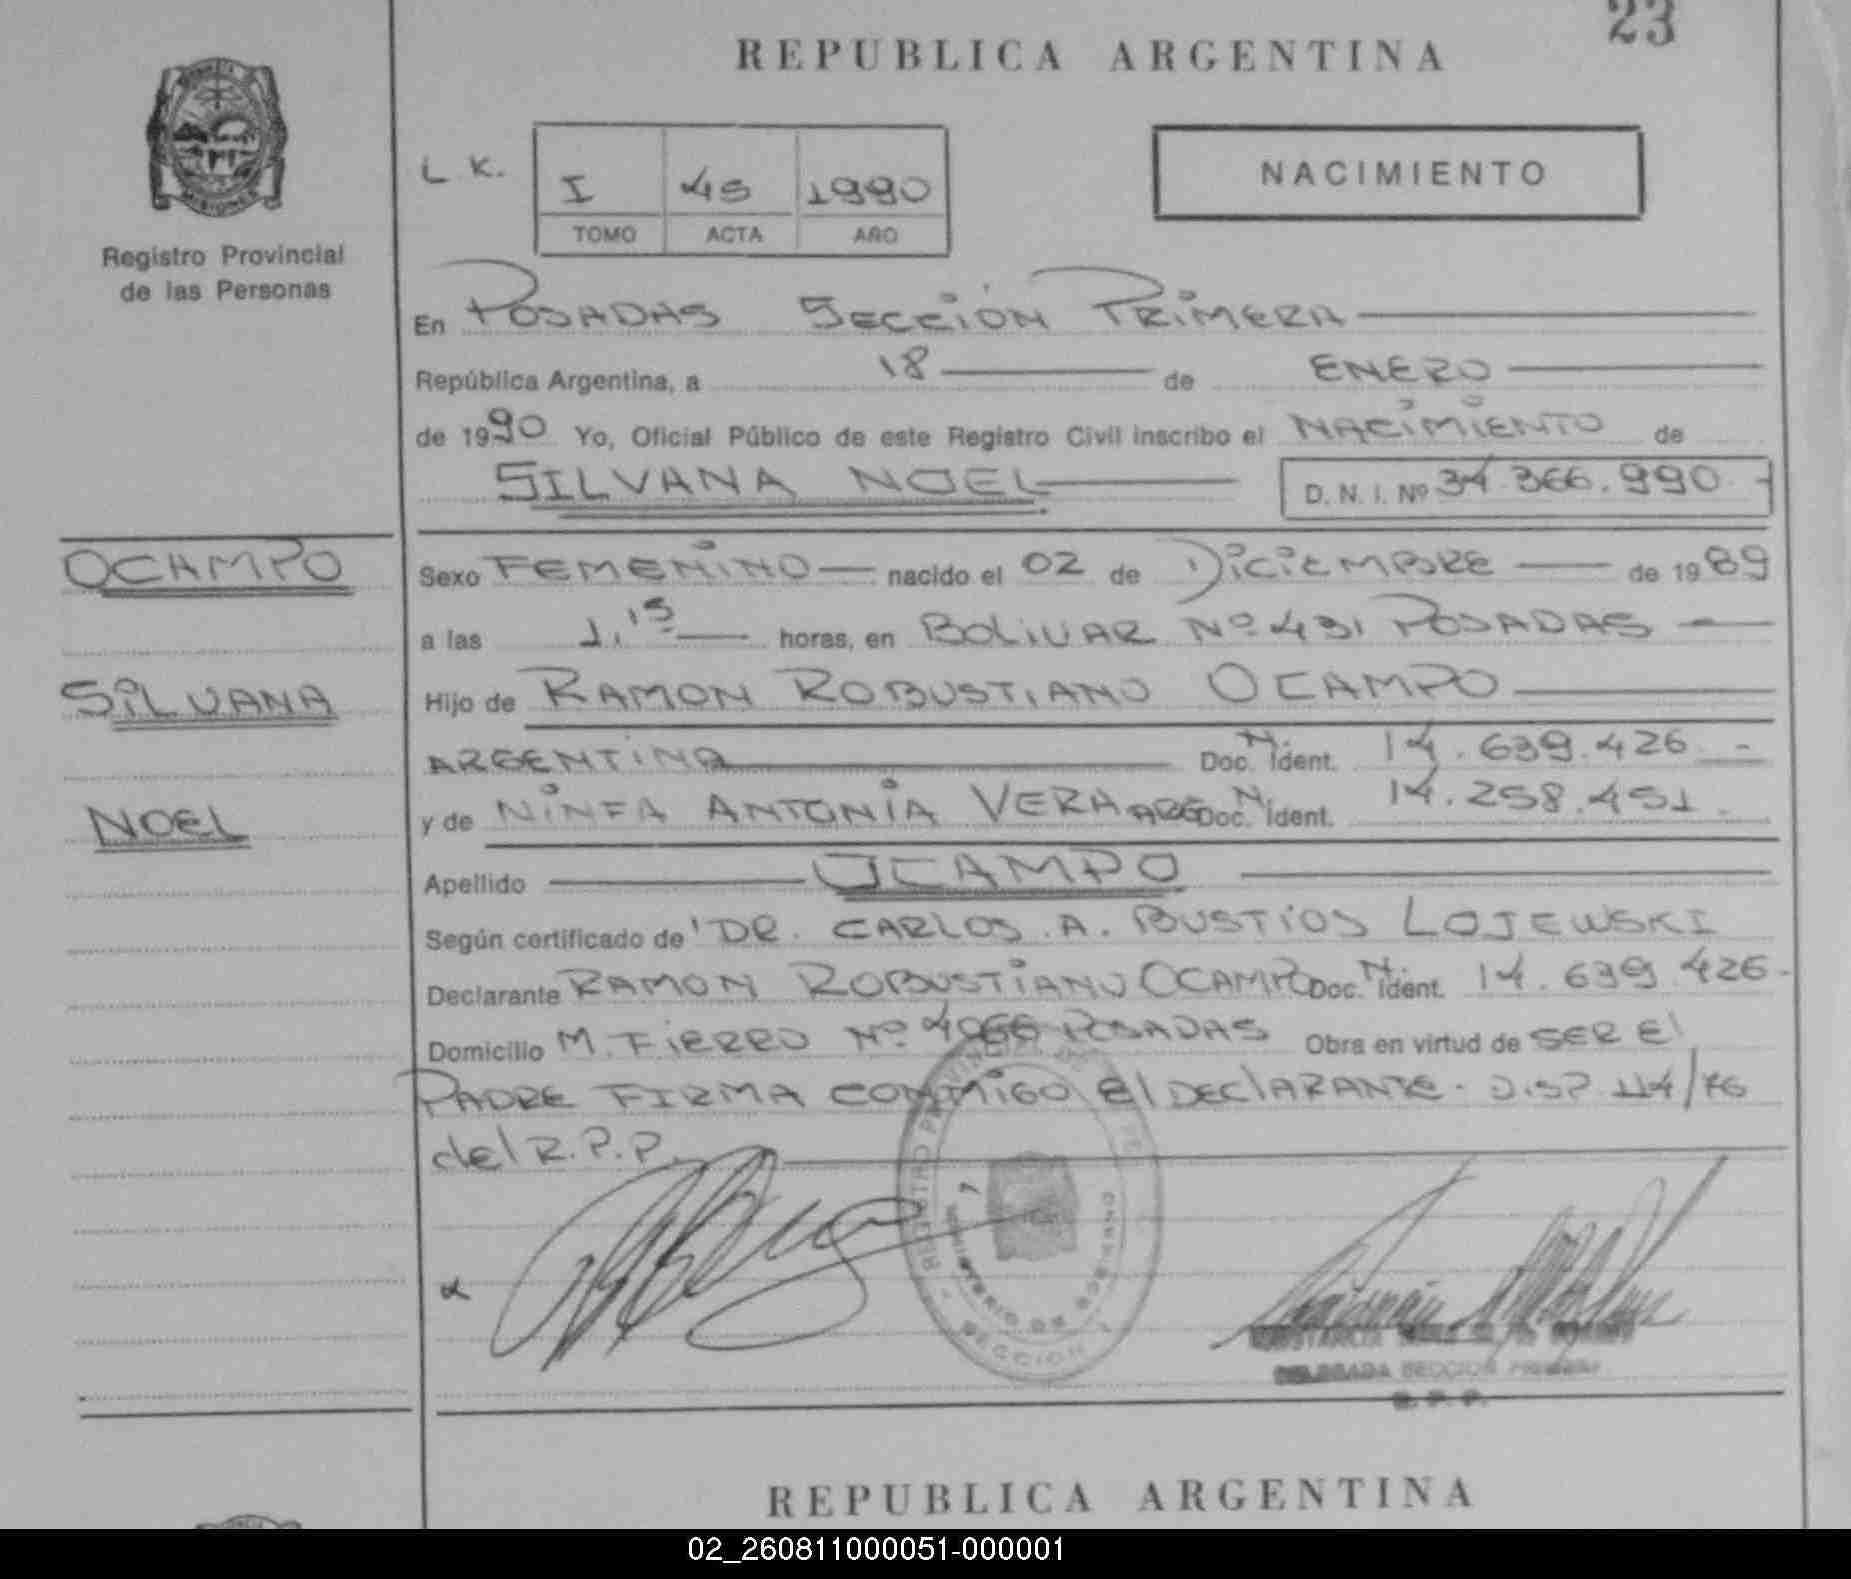 23
REPUBLICA ARGENTINA
MISIONES
Registro Provincial
de las Personas
L K.
I 45 1990
TOMO ACTA AÑO
NACIMIENTO
En POSADAS SECCIÓN PRIMERA
República Argentina, a 18 de ENERO
de 1990 Yo, Oficial Público de este Registro Civil inscribo el NACIMIENTO de
SILVANA NOEL D. N. I. Nº 34.366.990.-
OCAMPO
SILVANA
NOEL
Sexo FEMENINO nacido el 02 de DICIEMBRE de 1989
a las 1,15 horas, en BOLIVAR Nº 431 POSADAS
Hijo de RAMON ROBUSTIANO OCAMPO
ARGENTINA Doc. N. Ident. 14.639.426.-
y de NINFA ANTONIA VERA ARG Doc. N. Ident. 14.258.451.
Apellido OCAMPO
Según certificado de DR. CARLOS A. BUSTIOS LOJEWSKI
Declarante RAMON ROBUSTIANO OCAMPO Doc. N. Ident. 14.639.426-
Domicilio M. FIERRO Nº 4066 POSADAS Obra en virtud de SER El
PADRE FIRMA CONMIGO El DECLARANTE. DISP 114/76
del R.P.P.
REGISTRO PROVINCIAL DE
MINISTERIO DE GOBIERNO
SECCION 1
DELEGADA SECCION PRIMERA
R. P. P.
REPUBLICA ARGENTINA
02_260811000051-000001